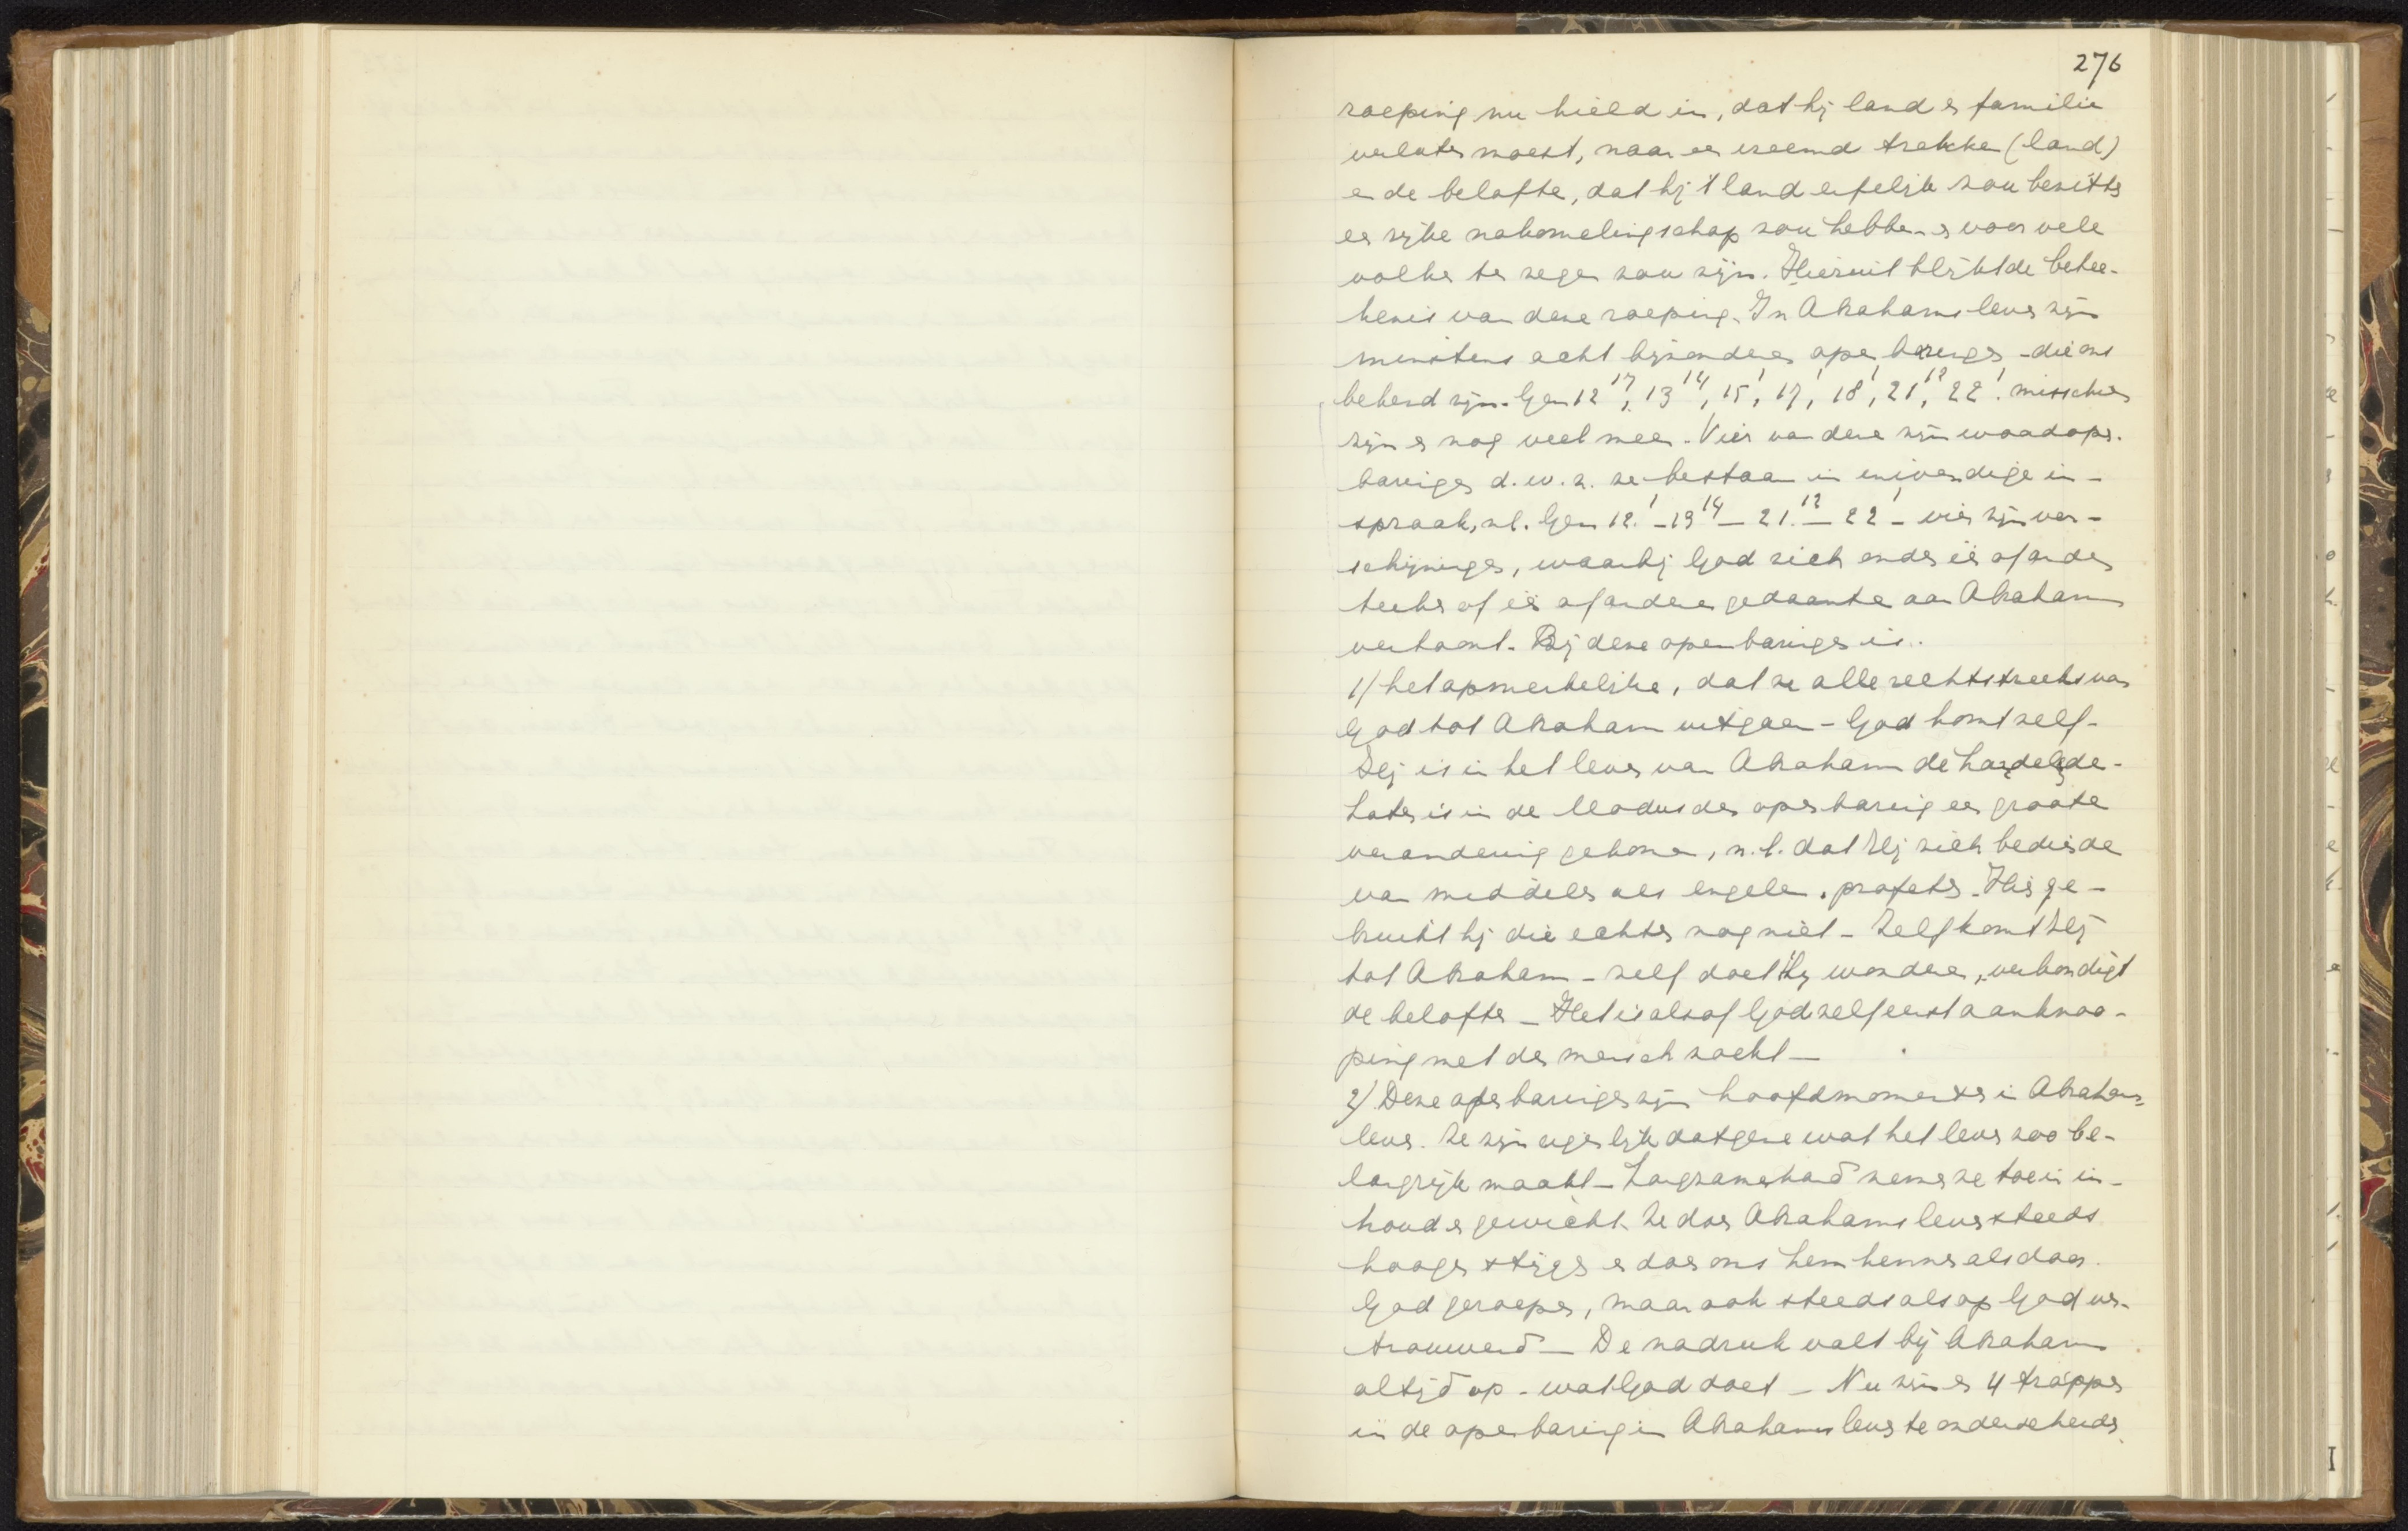 276
roeping nu hield in, dat hij land en familie
verlaten moest, naar een vreemd trekken (land)
en de belofte, dat hij 't land erfelijk zou bezitten
een rijke nakomelingschap zou hebben en voor vele
volken ten zegen zou zijn. Hieruit blijkt de betee-
kenis van deze roeping. In Abrahams leven zijn
minstens acht bijzondere openbaringen - die ons
bekend zijn. Gen 12 17, 13 14, 15 1, 17 1, 18 1, 21 12, 22 1. misschien
zijn er nog veel meer. Vier van deze zijn woordopen-
baringen d.w.z. ze bestaan in inwendige in-
spraak, nl. Gen 12. 1 - 13 14 - 21. 12 - 22 1 - vier zijn ver-
schijningen, waarbij God zich onder één of ander
teeken of één of andere gedaante aan Abraham
vertoont. Bij deze openbaringen is..
1) het opmerkelijke, dat ze alle rechtstreeks van
God tot Abraham uitgaan - God komt zelf -
Hij is in het leven van Abraham de handelende -
Later is in de Modus der openbaring een groote
verandering gekomen, n.l. dat Hij zich bediende
van middelen als engelen. profeten. Hier ge-
bruikt hij die echter nog niet - Zelf komt Hij
tot Abraham - zelf doet Hij wonderen, verkondigt
de beloften - Het is alsof God zelf eerst aanknoo-
ping met den mensch zoekt -
2) Deze openbaringen zijn hoofdmomenten in Abrahams
leven. Ze zijn eigenlijk datgene wat het leven zoo be-
langrijk maakt - Langzamerhand nemen ze toe in in-
houd en gewicht. Ze doen Abrahams leven steeds
hooger stijgen en doen ons hem kennen als door
God geroepen, maar ook steeds als op God ver-
trouwend - De nadruk valt bij Abraham
altijd op - wat God doet - Nu zijn er 4 trappen
in de openbaring in Abrahams leven te onderscheiden.